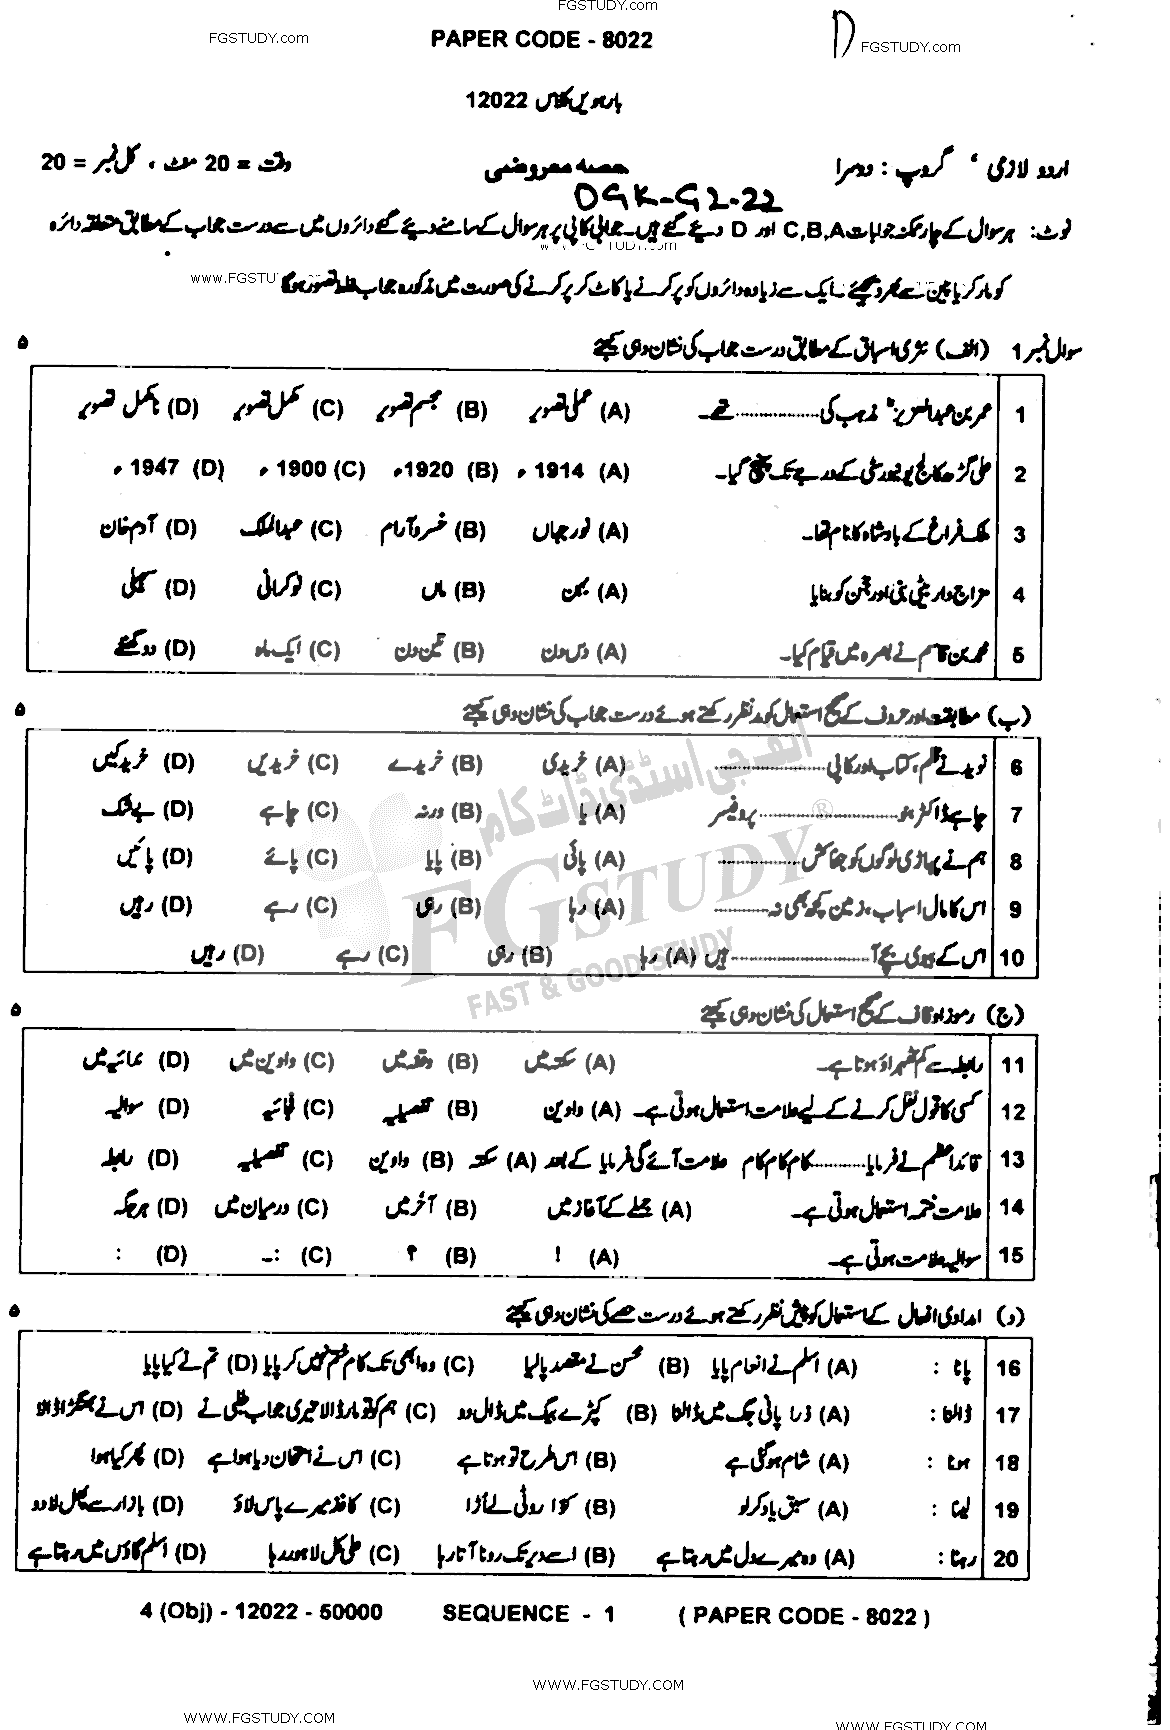 FGSTUDY.com
FGSTUDY.com PAPER CODE - 8022 D FGSTUDY.com
بارھویں کلاس 12022
اردو لازمی ، گروپ : دوسرا حصہ معروضی وقت = 20 منٹ ، کل نمبر = 20
DGK-G2-22
نوٹ: ہر سوال کے چار ممکنہ جوابات C,B,A اور D دیئے گئے ہیں۔ جوابی کاپی پر ہر سوال کے سامنے دیئے گئے دائروں میں سے درست جواب کے مطابق متعلقہ دائرہ
www.FGSTUDY.com
کو مارکر یا پین سے بھر دیجئے۔ ایک سے زیادہ دائروں کو پر کرنے یا کاٹ کر پر کرنے کی صورت میں مذکورہ جواب غلط تصور ہوگا
سوال نمبر 1 (الف) نثری اسباق کے مطابق درست جواب کی نشان دہی کیجئے ۵
1 عمر بن عبدالعزیزؒ مذہب کی .................. تھے۔ (A) عملی تصویر (B) مجسم تصویر (C) مکمل تصویر (D) نامکمل تصویر
2 علی گڑھ کالج یونیورسٹی کے درجے تک پہنچ گیا۔ (A) 1914ء (B) 1920ء (C) 1900ء (D) 1947ء
3 ملک فراغ کے بادشاہ کا نام تھا۔ (A) نور جہاں (B) خسرو آرام (C) عبدالملک (D) آدم خان
4 مزاج دار بیٹی بنی اور جُن کو بنایا (A) بہن (B) ماں (C) نوکرانی (D) سہیلی
5 محمد بن قاسم نے بصرہ میں قیام کیا۔ (A) دس دن (B) تین دن (C) ایک ماہ (D) دو گھنٹے
(ب) مطابقت اور حروف کے صحیح استعمال کو مدنظر رکھتے ہوئے درست جواب کی نشان دہی کیجئے ۵
6 نوید نے قلم، کتاب اور کاپی .................. (A) خریدی (B) خریدے (C) خریدیں (D) خرید کیں
7 چاہے ڈاکٹر ہو .................. پروفیسر (A) یا (B) ورنہ (C) چاہے (D) بے شک
8 ہم نے پہاڑی لوگوں کو جفاکش .................. (A) پائی (B) پایا (C) پائے (D) پائیں
9 اس کا مال اسباب، زمین کچھ بھی نہ .................. (A) رہا (B) رہی (C) رہے (D) رہیں
10 اس کے بیوی بچے آ .................. ہیں (A) رہا (B) رہی (C) رہے (D) رہیں
ایف جی اسٹڈی ڈاٹ کام
FGSTUDY®
FAST & GOOD STUDY
(ج) رموز اوقاف کے صحیح استعمال کی نشان دہی کیجئے ۵
11 رابطہ سے کم ٹھہراؤ ہوتا ہے۔ (A) سکتہ میں (B) وقفہ میں (C) واوین میں (D) ندائیہ میں
12 کسی کا قول نقل کرنے کے لیے علامت استعمال ہوتی ہے۔ (A) واوین (B) تفصیلیہ (C) فجائیہ (D) سوالیہ
13 قائداعظم نے فرمایا ............ کام کام کام علامت آئے گی فرمایا کے بعد (A) سکتہ (B) واوین (C) تفصیلیہ (D) رابطہ
14 علامت ختمہ استعمال ہوتی ہے۔ (A) جملے کے آغاز میں (B) آخر میں (C) درمیان میں (D) ہر جگہ
15 سوالیہ علامت ہوتی ہے۔ (A) ! (B) ؟ (C) :۔ (D) :
(د) امدادی افعال کے استعمال کو پیش نظر رکھتے ہوئے درست جملے کی نشان دہی کیجئے ۵
16 پانا : (A) اسلم نے انعام پایا (B) محسن نے مقصد پا لیا (C) وہ ابھی تک کام ختم نہیں کر پایا (D) تم نے کیا پایا
17 ڈالنا : (A) ذرا پانی جگ میں ڈالنا (B) کپڑے بیگ میں ڈال دو (C) ہم کو تو مار ڈالا تیری جواب طلبی نے (D) اس نے بھنگڑا ڈالا
18 ہونا : (A) شام ہو گئی ہے (B) اس طرح تو ہوتا ہے (C) اس نے امتحان دیا ہوا ہے (D) پھر کیا ہوا
19 لینا : (A) سبق یاد کر لو (B) کوا روٹی لے اُڑا (C) کاغذ میرے پاس لاؤ (D) بازار سے پھل لا دو
20 رہنا : (A) وہ میرے دل میں رہتا ہے (B) اسے دیر تک رونا آتا رہا (C) علی کل لاہور رہا (D) اسلم گاؤں میں رہتا ہے
4 (Obj) - 12022 - 50000 SEQUENCE - 1 ( PAPER CODE - 8022 )
WWW.FGSTUDY.COM
WWW.FGSTUDY.COM